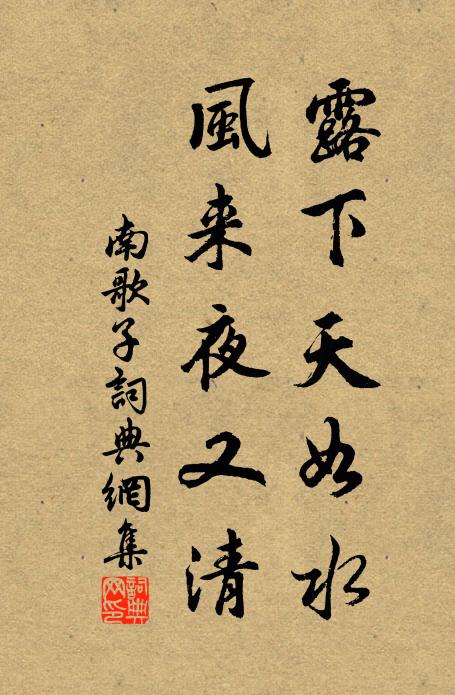 露下天如水
風来夜又清
南歌子詞典網集
詞典
网印